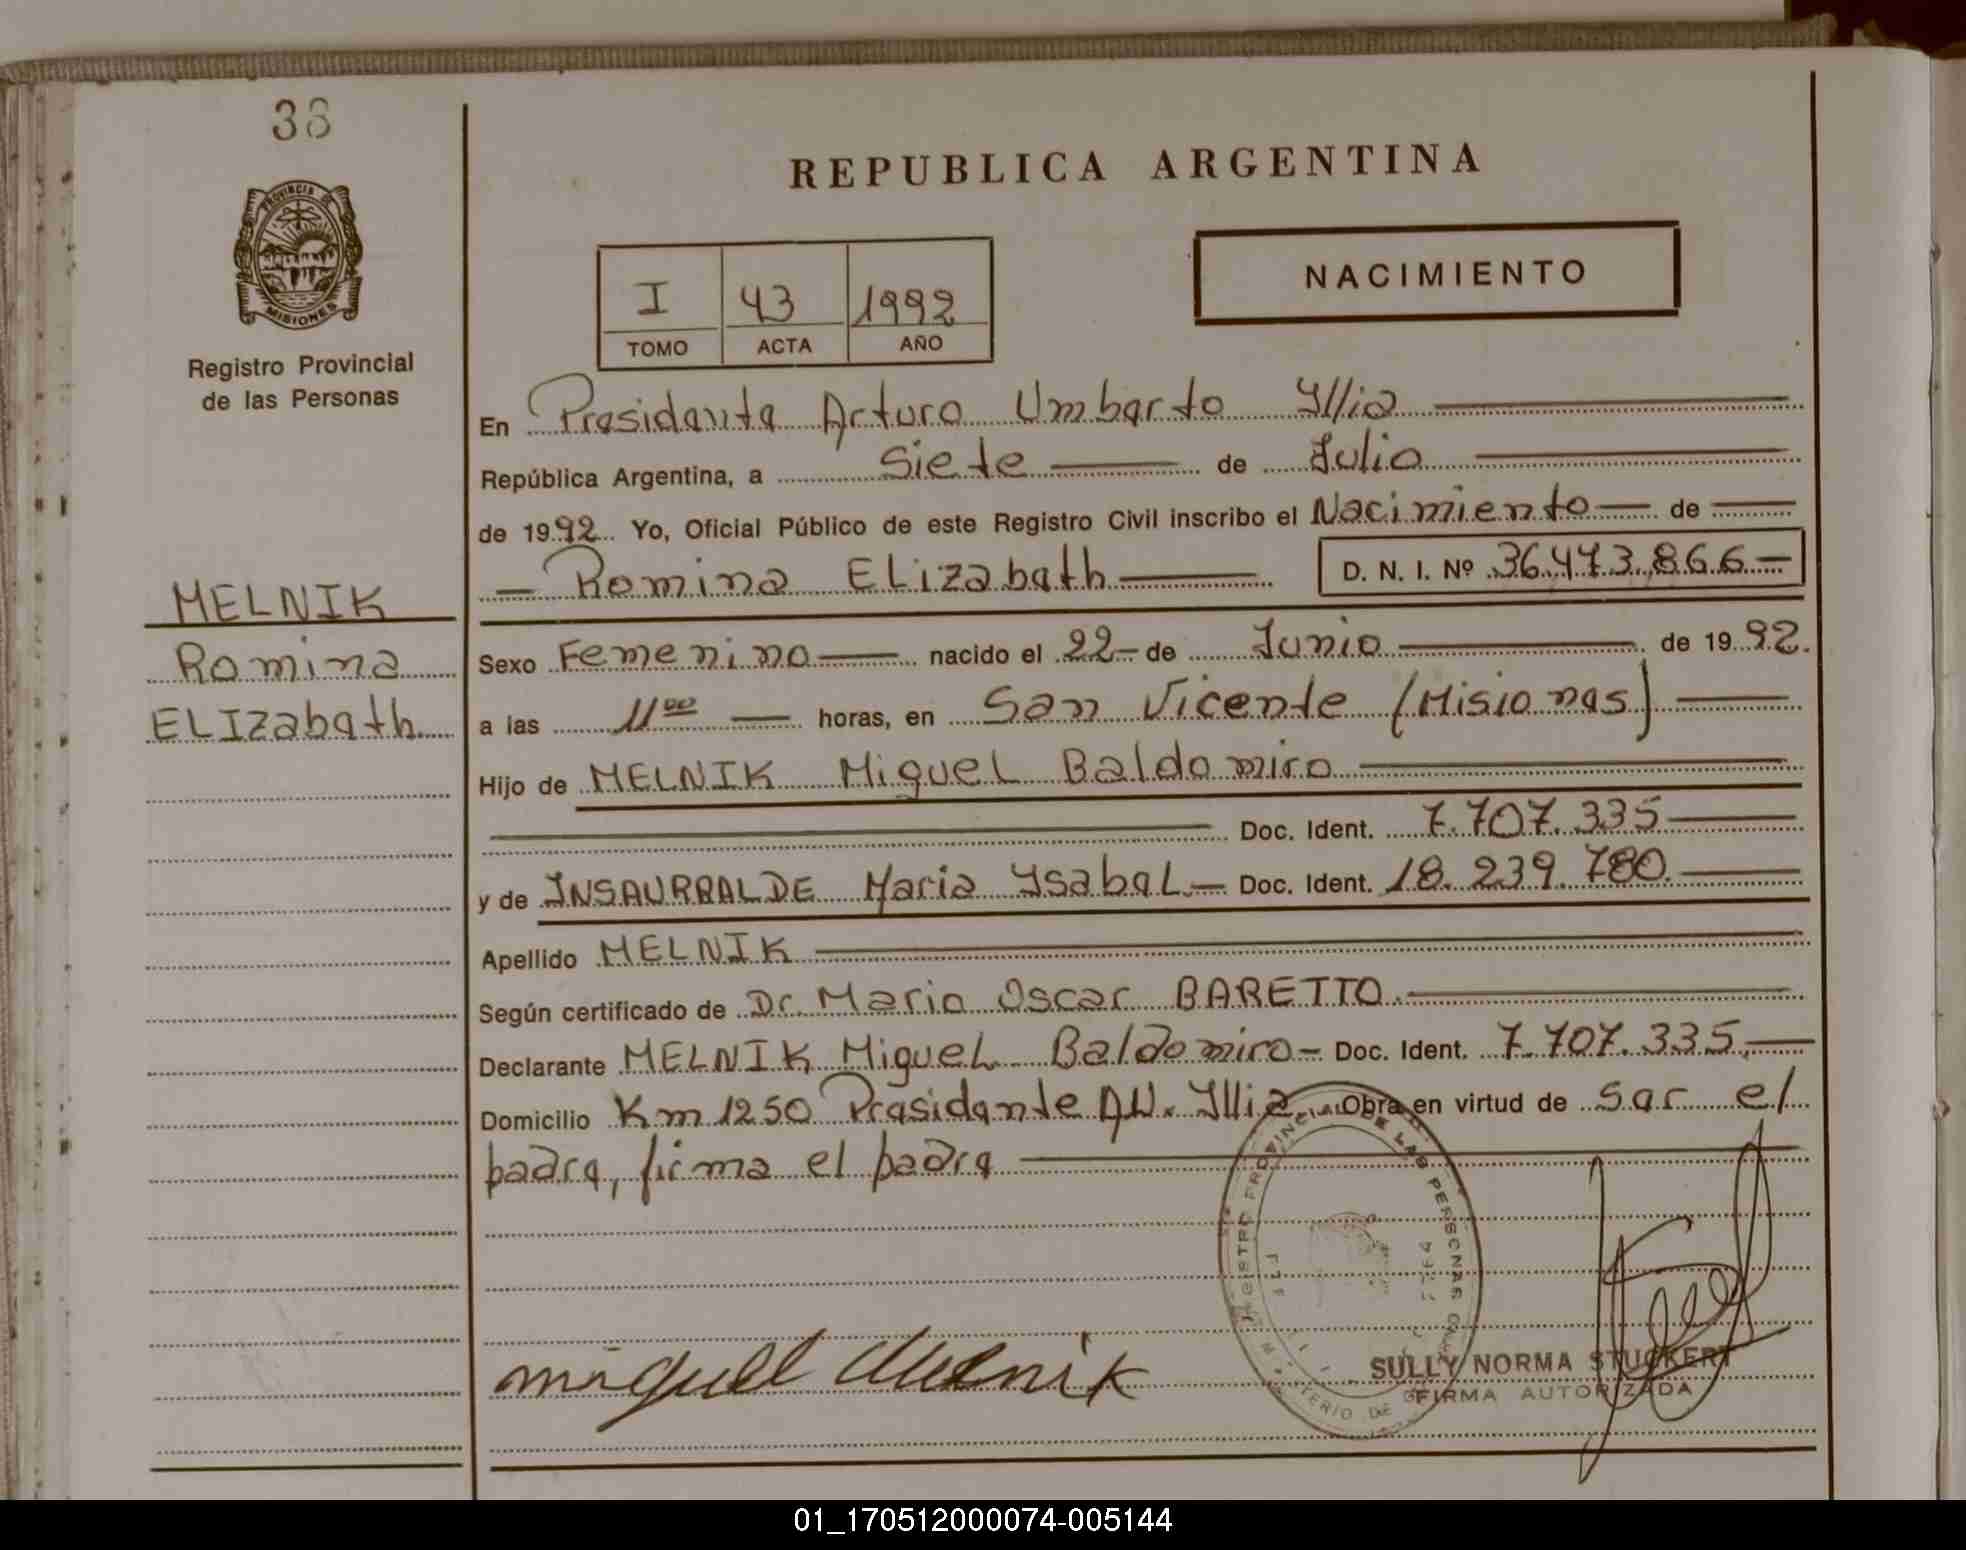 38
PROVINCIA DE
MISIONES
Registro Provincial
de las Personas
MELNIK
Romina
ELIzabeth
REPUBLICA ARGENTINA
NACIMIENTO
I 43 1992
TOMO ACTA AÑO
En Presidente Arturo Umberto Yllia
República Argentina, a siete de Julio
de 1992 Yo, Oficial Público de este Registro Civil inscribo el Nacimiento de
Romina ELizabeth D. N. I. Nº 36.473.866
Sexo Femenino nacido el 22 de Junio de 1992.
a las 11 00 horas, en San Vicente (Misiones)
Hijo de MELNIK Miguel Baldomiro
Doc. Ident. 7.707.335
y de INSAURRALDE Maria Ysabel Doc. Ident. 18.239.780.
Apellido MELNIK
Según certificado de Dr. Mario Oscar BARETTO.
Declarante MELNIK Miguel Baldomiro Doc. Ident. 7.707.335,
Domicilio Km 1250 Presidente A.U. Yllia Obra en virtud de ser el
padre, firma el padre
PROVINCIAL DE LAS PERSONAS
miguel Melnik
SULLY NORMA STUCKERT
FIRMA AUTORIZADA
01_170512000074-005144